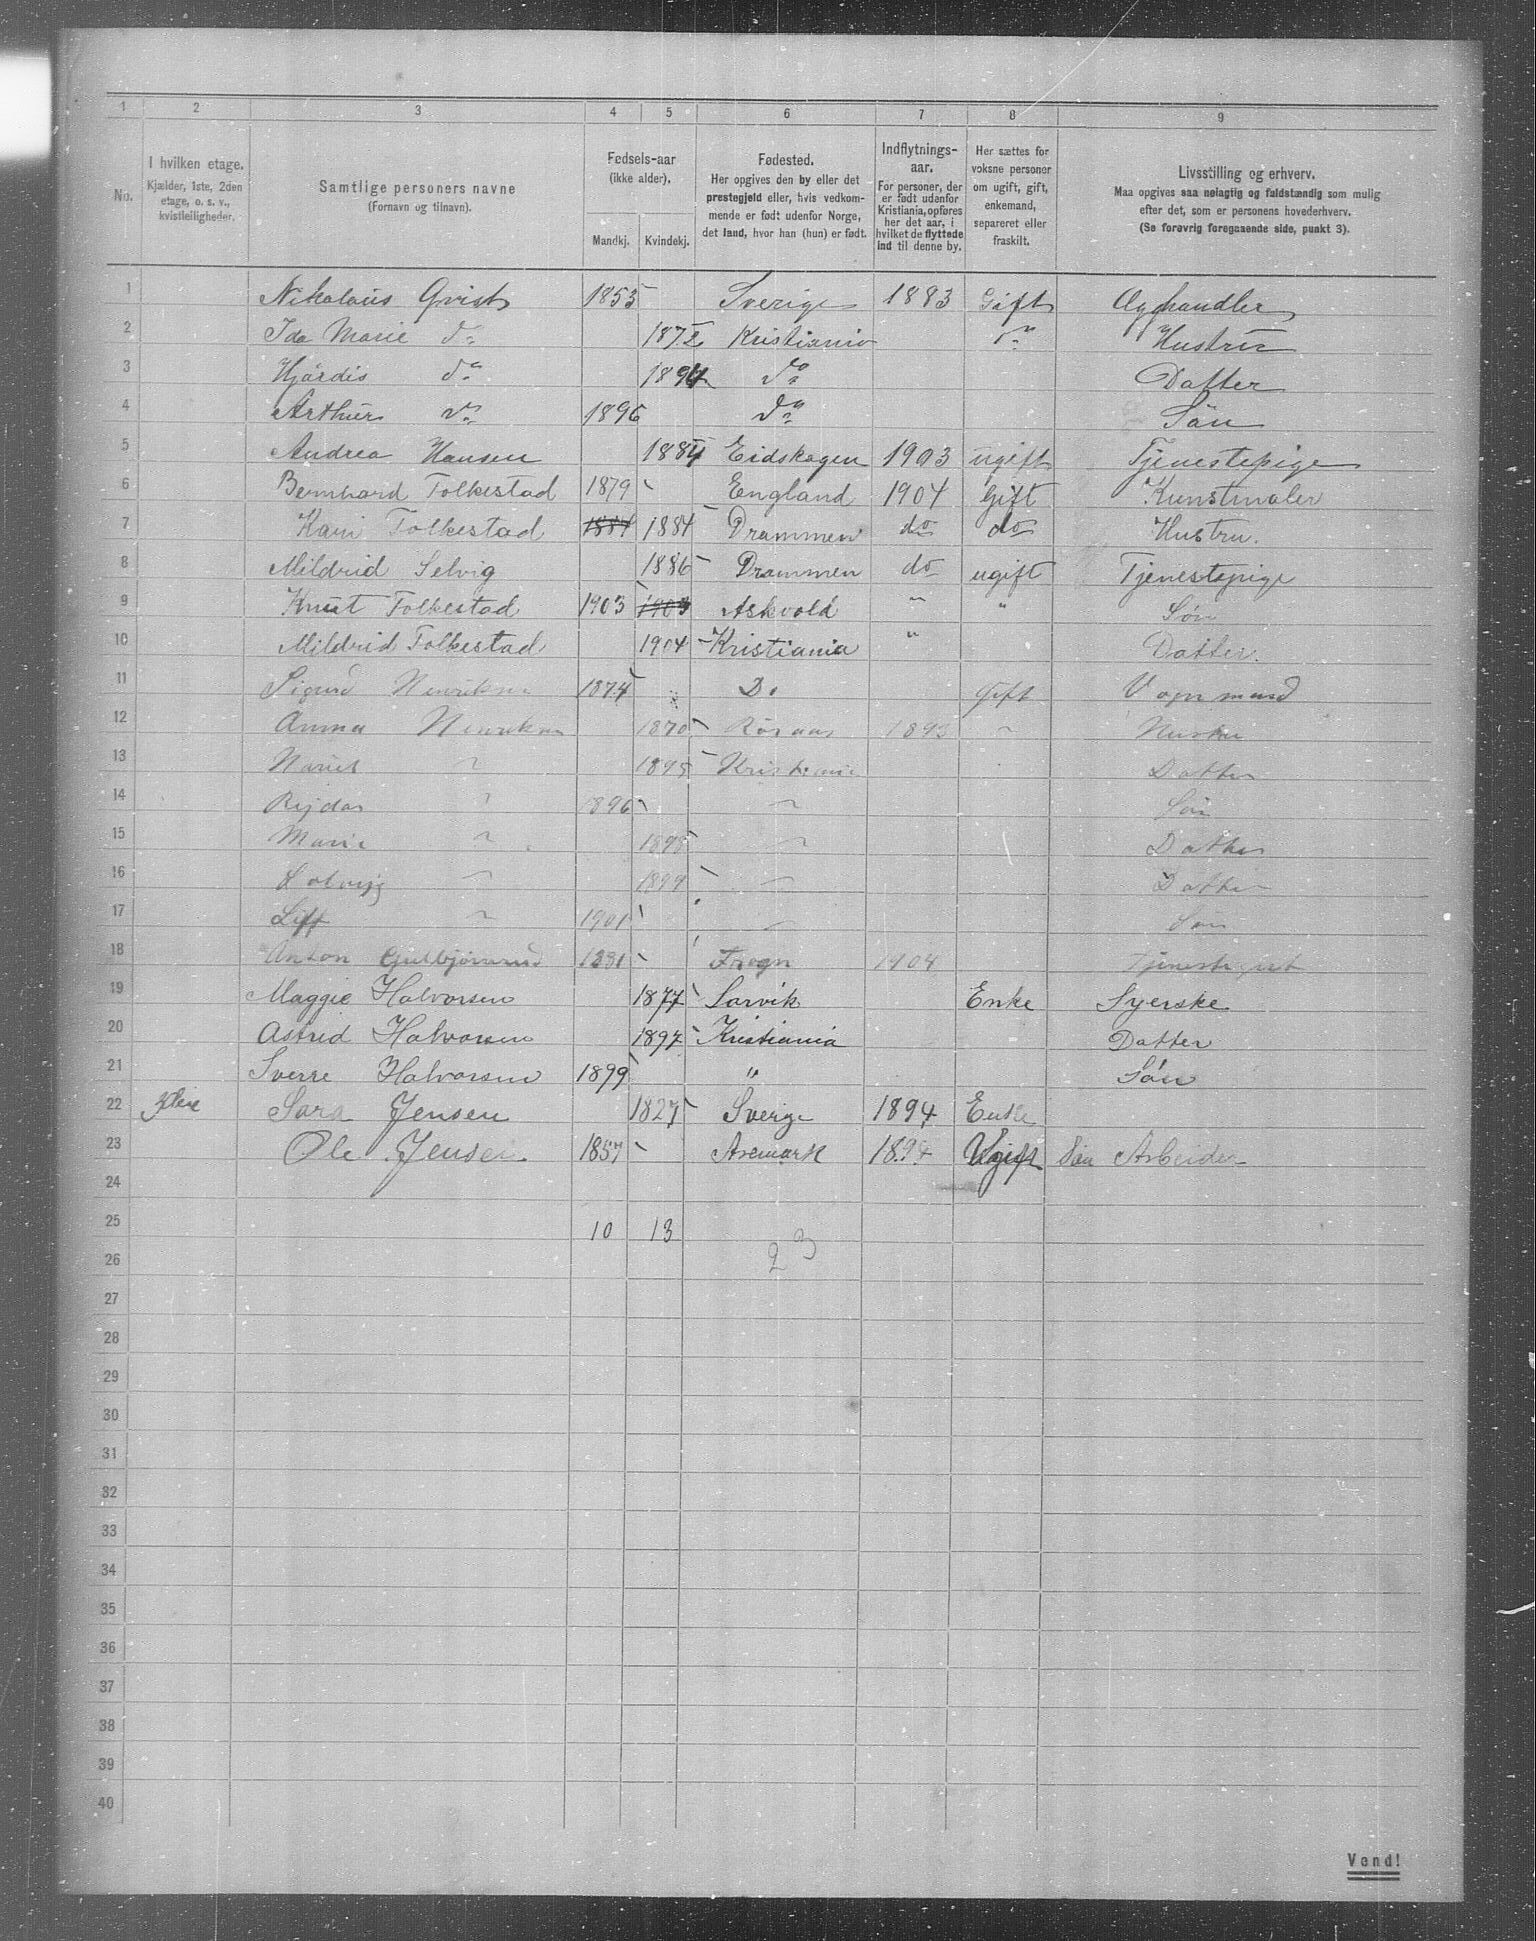 1 2 3 4 5 6 7 8 9
No.
I hvilken etage.
Kjælder, 1ste, 2den
etage, o. s. v.,
kvistleiligheder.
Samtlige personers navne
(Fornavn og tilnavn).
Fødsels-aar
(ikke alder).
Mandkj. Kvindekj.
Fødested.
Her opgives den by eller det
prestegjeld eller, hvis vedkom-
mende er født udenfor Norge,
det land, hvor han (hun) er født.
Indflytnings-
aar.
For personer, der
er født udenfor
Kristiania, opføres
her det aar, i
hvilket de flyttede
ind til denne by.
Her sættes for
voksne personer
om ugift, gift,
enkemand,
separeret eller
fraskilt.
Livsstilling og erhverv.
Maa opgives saa nøiagtig og fuldstændig som mulig
efter det, som er personens hovederhverv.
(Se forøvrig foregaaende side, punkt 3).
1 Nikolaus Qvist 1853 Sverige 1883 Gift Æghandler
2 Ida Marie do 1872 Kristiania do Hustru
3 Hjärdis do 1894 do Datter
4 Arthur do 1896 do Sön
5 Andrea Hansen 1884 Eidskogen 1903 ugift Tjenestepige
6 Bernhard Folkestad 1879 England 1904 Gift Kunstmaler
7 Kari Folkestad 1884 1884 Drammen do do Hustru.
8 Mildrid Selvig 1886 Drammen do ugift Tjenestepige
9 Knut Folkestad 1903 1903 Askvold " " Søn
10 Mildrid Folkestad 1904 Kristiania " Datter.
11 Sigurd Henriksen 1874 Do Gift Vognmand
12 Anna Henriksen 1870 Røraas 1893 " Hustru
13 " 1895 Kristiania Datter
14 " 1896 " Søn
15 Marie " 1898 " Datter
16 Solveig " 1899 " Datter
17 " 1901 " Søn
18 Anton 1881 Frogn 1904
19 Maggie Halvorsen 1877 Larvik Enke Syerske
20 Astrid Halvorsen 1897 Kristiania Datter
21 Sverre Halvorsen 1899 " Søn
22 Sara Jensen 1827 Sverge 1894 Enke
23 Ole Jensen 1857 Aremark 1894 Ugift Søn Arbeider
24
25 10 13
26 23
27
28
29
30
31
32
33
34
35
36
37
38
39
40
Vend!